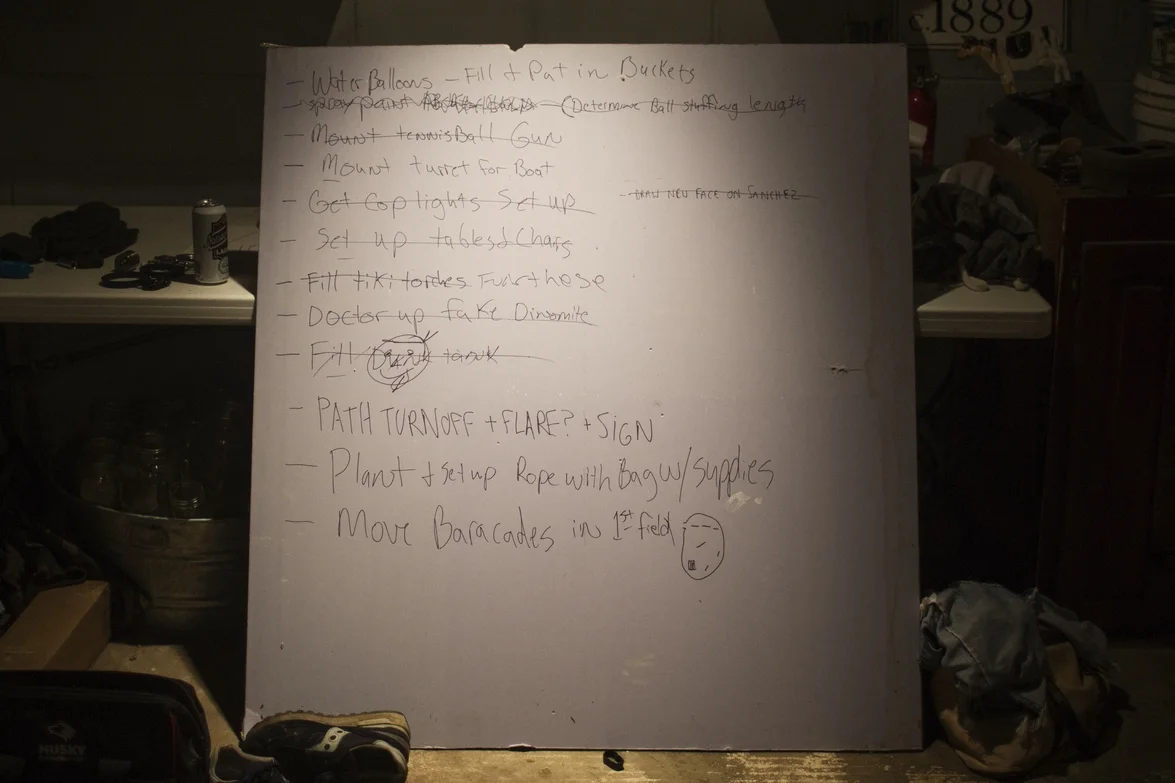 c.1889
- Water Balloons - Fill + Put in Buckets
- spray paint (Determine Ball stuffing length
- Mount tennis Ball Gun
- Mount turret for Boat
- Get Cop lights Set up
- DRAW NEW FACE ON SANCHEZ
- Set up tables + Chairs
- Fill tiki torches
- Doctor up fake Dinomite
- Fill Dunk tank
- PATH TURNOFF + FLARE? + SIGN
- Plant + set up Rope with Bag w/ supplies
- Move Baracades in 1st field
HUSKY